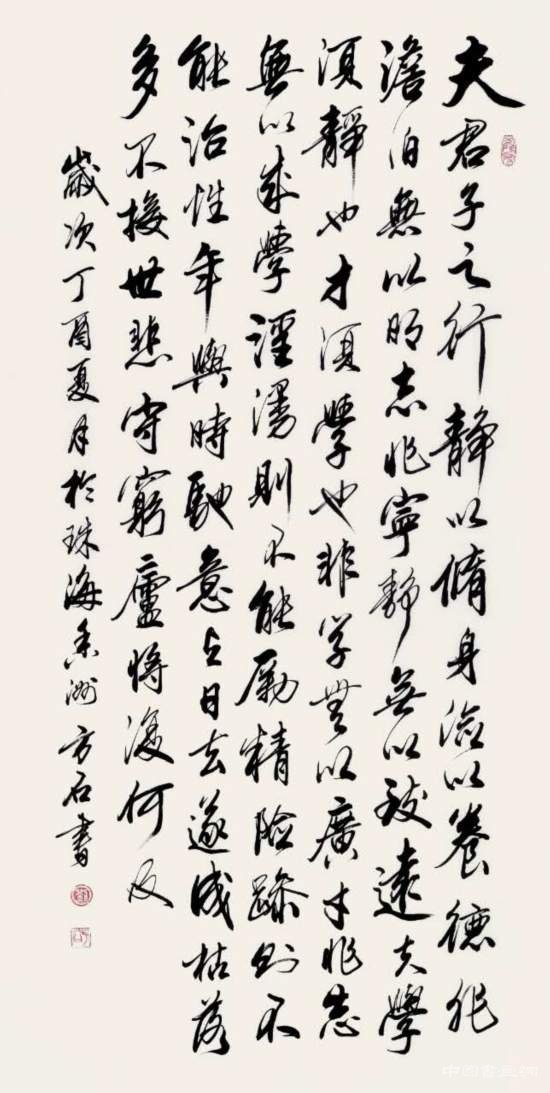 夫君子之行靜以脩身儉以養德非
澹泊無以明志非寧靜無以致遠夫學
須靜也才須學也非学無以廣才非志
無以成學淫漫則不能勵精險躁則不
能治性年與時馳意与日去遂成枯落
多不接世悲守窮廬將復何及
歲次丁酉夏月於珠海香洲方石書